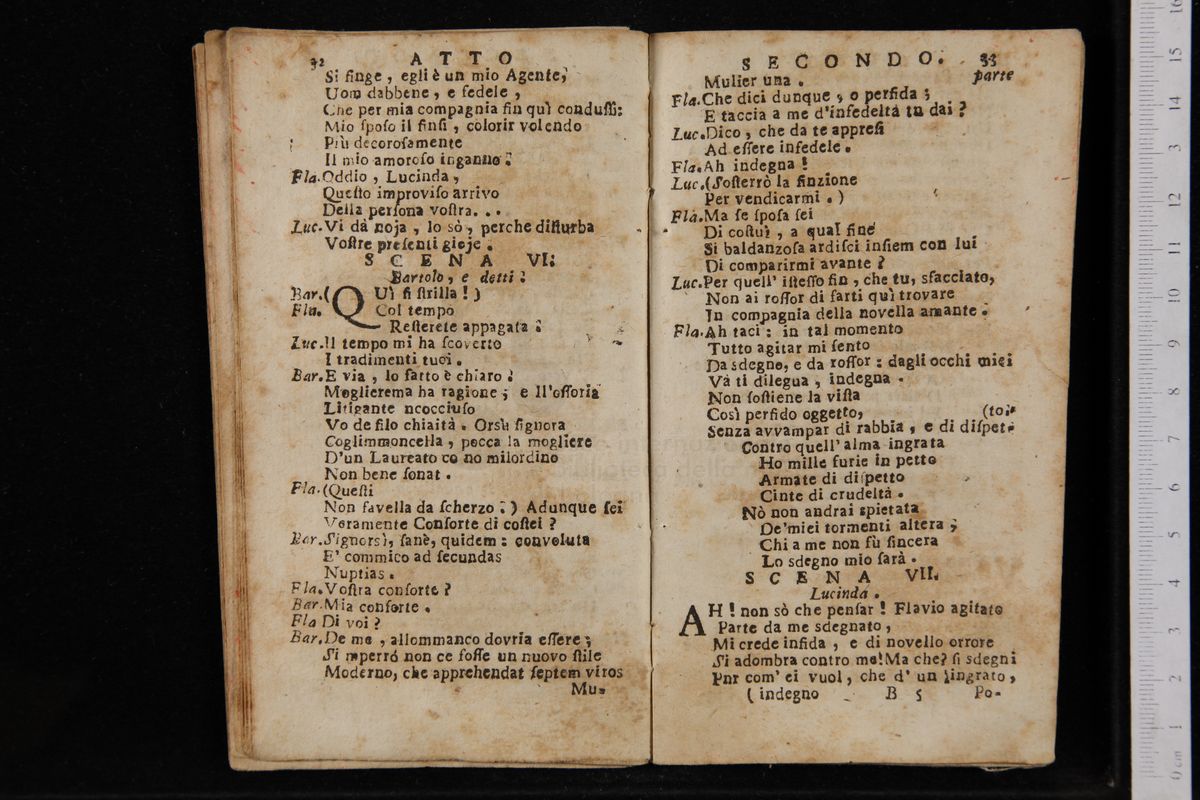 32 ATTO
Si finge, egli è un mio Agente,
Uom dabbene, e fedele,
Che per mia compagnia fin quì condussi:
Mio sposo il finsi, colorir volendo
Più decorosamente
Il mio amoroso inganno.
Fla. Oddio, Lucinda,
Questo improviso arrivo
Della persona vostra...
Luc. Vi dà noja, lo sò, perche disturba
Vostre presenti gioje.
SCENA VI.
Bartolo, e detti.
Bar. (QUì si strilla!)
Fla. Col tempo
Resterete appagata.
Luc. Il tempo mi ha scoverto
I tradimenti tuoi.
Bar. E via, lo fatto è chiaro.
Moglierema ha ragione; e ll'ossoria
Litigante ncocciuso
Vo de filo chiaità. Orsù signora
Coglimmoncella, pecca la mogliere
D'un Laureato co no milordino
Non bene sonat.
Fla. (Questi
Non favella da scherzo.) Adunque sei
Veramente Consorte di costei?
Bar. Signorsì, sanè, quidem: convoluta
E' commico ad secundas
Nuptias.
Fla. Vostra consorte?
Bar. Mia consorte.
Fla Di voi?
Bar. De me, allommanco dovria essere;
Si mperrò non ce fosse un nuovo stile
Moderno, che apprehendat septem viros
Mu-
SECONDO. 33
Mulier una. parte
Fla. Che dici dunque, o perfida;
E taccia a me d'infedeltà tu dai?
Luc. Dico, che da te appresi
Ad essere infedele.
Fla. Ah indegna!
Luc. (Sosterrò la finzione
Per vendicarmi.)
Fla. Ma se sposa sei
Di costui, a qual fine
Si baldanzosa ardisci insiem con lui
Di comparirmi avante?
Luc. Per quell' istesso fin, che tu, sfacciato,
Non ai rossor di farti quì trovare
In compagnia della novella amante.
Fla. Ah taci: in tal momento
Tutto agitar mi sento
Da sdegno, e da rossor: dagli occhi miei
Và ti dilegua, indegna.
Non sostiene la vista
Così perfido oggetto, (to.
Senza avvampar di rabbia, e di dispet-
Contro quell' alma ingrata
Ho mille furie in petto
Armate di dispetto
Cinte di crudeltà.
Nò non andrai spietata
De'miei tormenti altera;
Chi a me non fù sincera
Lo sdegno mio sarà.
SCENA VII.
Lucinda.
AH! non sò che pensar! Flavio agitato
Parte da me sdegnato,
Mi crede infida, e di novello orrore
Si adombra contro me! Ma che? si sdegni
Pnr com' ei vuol, che d' un ingrato,
(indegno B 5 Po-